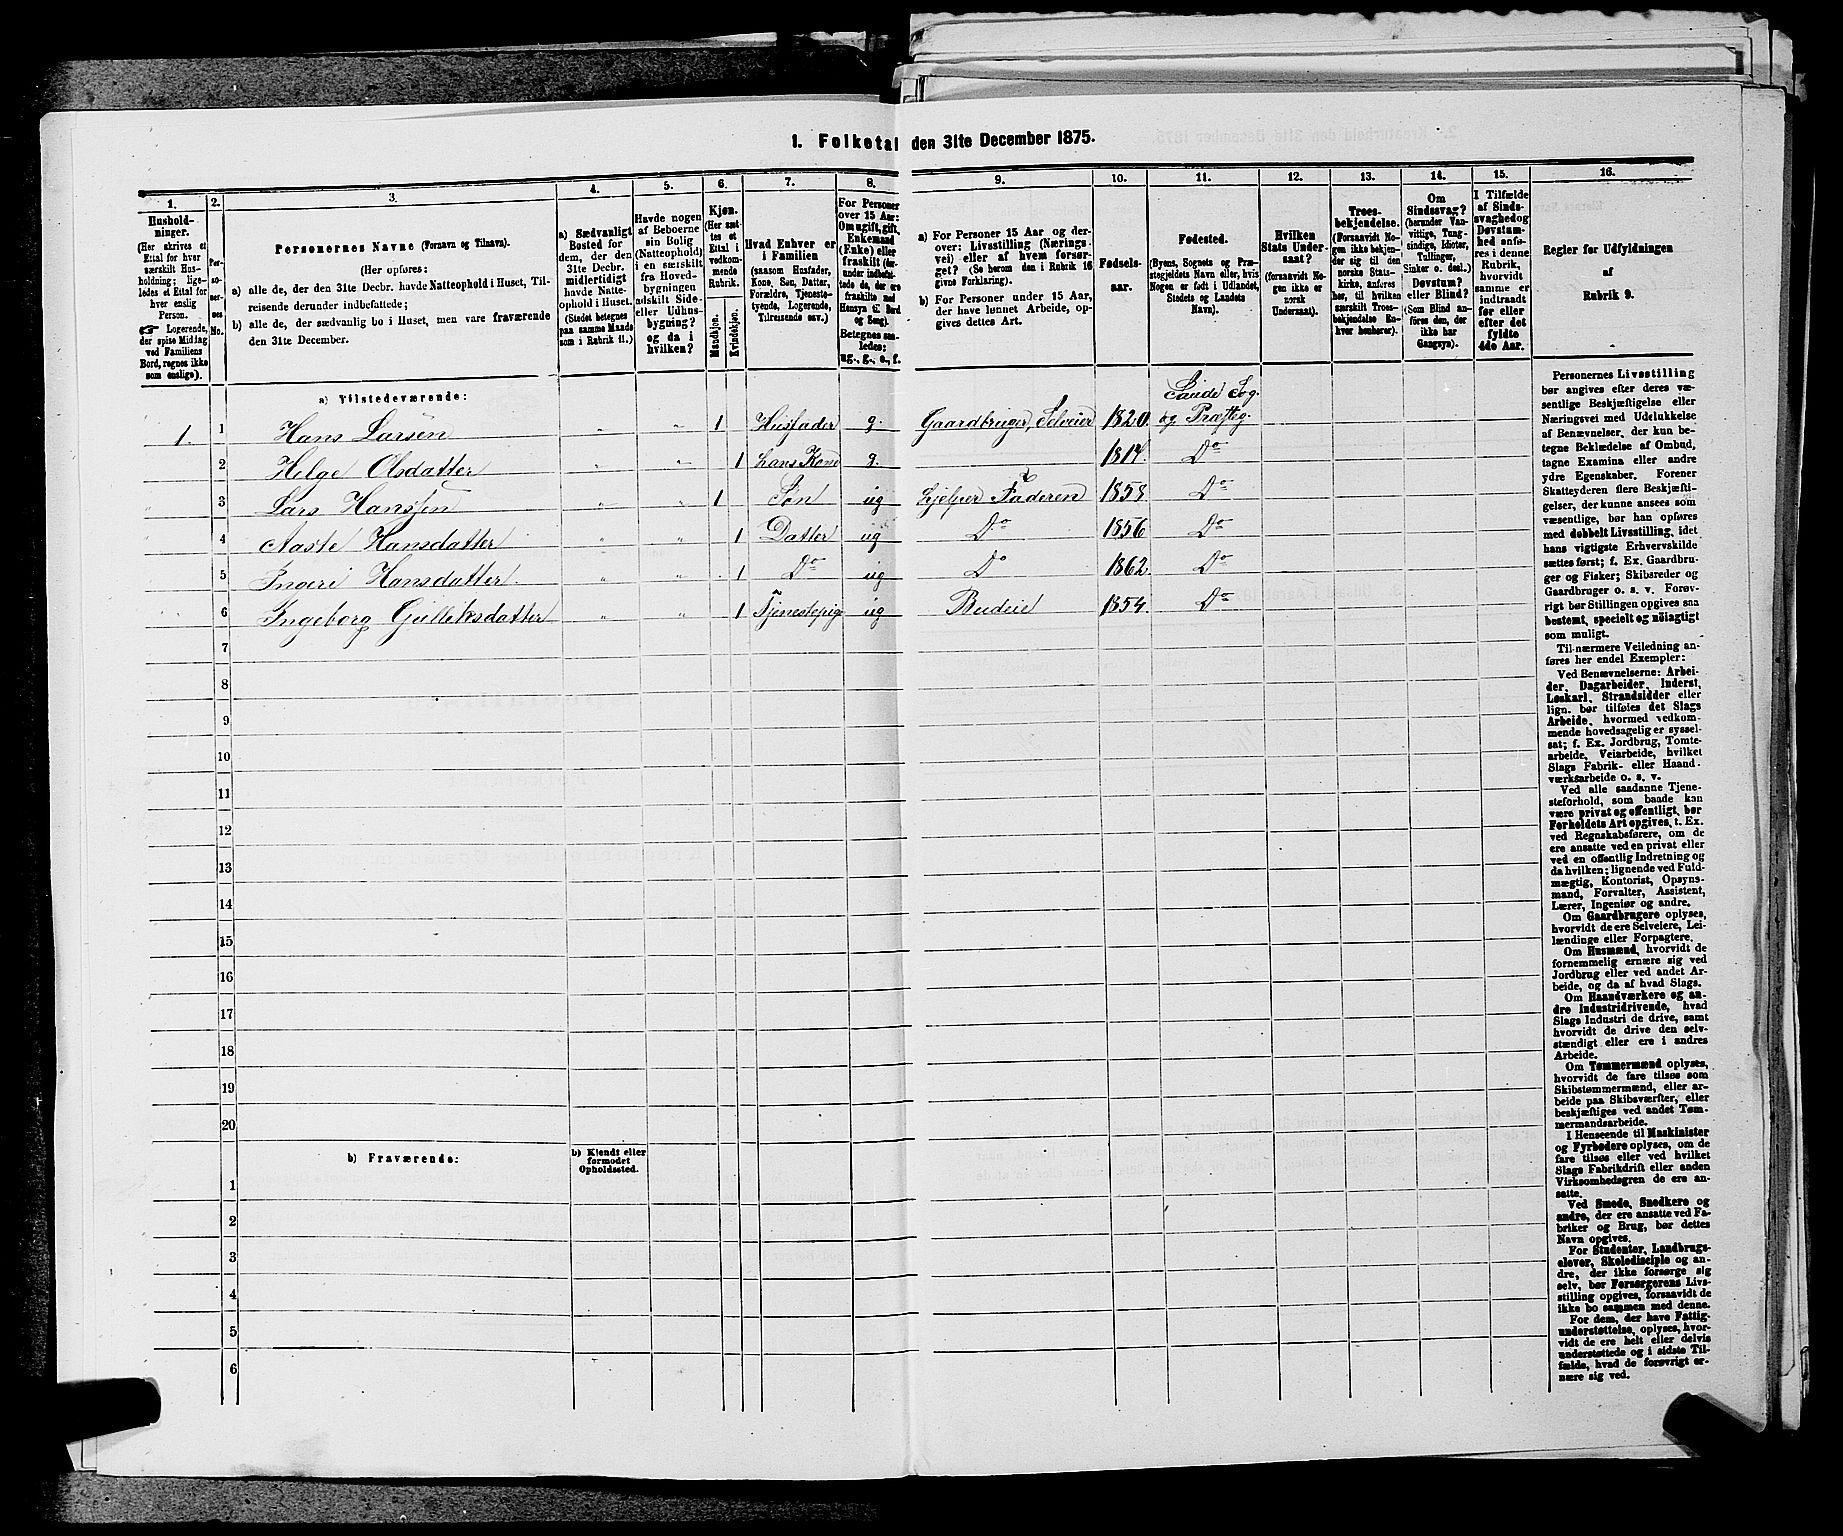 1. Folketal den 31te December 1875.
1.
2.
3.
4.
5.
6.
7.
8.
9.
10.
11.
12.
13.
14.
15.
16.
Hushold-
ninger.
(Her skrives et
Ettal for hver
særskilt Hus-
holdning; lige-
ledes et Ettal for
hver enslig
Person.
☞ Logerende,
der spise Middag
ved Familiens
Bord, regnes ikke
som enslige).
Per-
so-
ner-
nes
No.
Personernes Navne (Fornavn og Tilnavn).
(Her opføres:
a) alle de, der den 31te Decbr. havde Natteophold i Huset, Til-
reisende derunder indbefattede;
b) alle de, der sædvanlig bo i Huset, men vare fraværende
den 31te December.
a) Sædvanligt
Bosted for
dem, der den
31te Decbr.
midlertidigt
havde Natte-
ophold i Huset.
(Stedet betegnes
paa samme Maade
som i Rubrik 11.)
Havde nogen
af Beboerne
sin Bolig
(Natteophold)
i en særskilt
fra Hoved-
bygningen
adskilt Side-
eller Udhus-
bygning?
og da i
hvilken?
Kjøn.
(Her sæt-
tes et
Ettal i
vedkom-
mende
Rubrik.
Mandkjøn.
Kvindekjøn.
Hvad Enhver er
i Familien
(saasom Husfader,
Kone, Søn, Datter,
Forældre, Tjeneste-
tyende, Logerende,
Tilreisende osv.)
For Personer
over 15 Aar:
Om ugift, gift,
Enkemand
(Enke) eller
fraskilt (der-
under indbefat-
tede de, der ere
fraskilte med
Hensyn til Bord
og Seng).
Betegnes saa-
ledes:
ug., g., e., f.
a) For Personer 15 Aar og der-
over: Livsstilling (Nærings-
vei) eller af hvem forsør-
get? (Se herom den i Rubrik 16
givne Forklaring).
b) For Personer under 15 Aar,
der have lønnet Arbeide, op-
gives dettes Art.
Fødsels-
aar.
Fødested.
(Byens, Sognets og Præ-
stegjeldets Navn eller, hvis
Nogen er født i Udlandet,
Stedets og Landets
Navn).
Hvilken
Stats Under-
saat?
(forsaavidt No-
gen ikke er
norsk
Undersaat).
Troes-
bekjendelse.
(Forsaavidt No-
gen ikke bekjen-
der sig til den
norske Stats-
kirke, anføres
her, til hvilken
særskilt Troes-
bekjendelse En-
hver henhører).
Om
Sindssvag?
(herunder Van-
vittige, Tung-
sindige, Idioter,
Tullinger,
Sinker o. desl.)
Døvstum?
eller Blind?
(Som Blind an-
føres den, der
ikke har
Gangsyn).
I Tilfælde
af Sinds-
svaghed og
Døvstum-
hed anfø-
res i denne
Rubrik,
hvorvidt
samme er
indtraadt
før eller
efter det
fyldte
4de Aar.
Regler for Udfyldningen
af
Rubrik 9.
a) Tilstedeværende:
Sande Sog.
1. 1 Hans Larsen " " 1 Husfader g. Gaardbruger, Selveier 1820. og Præsteg.
2 Helge Olsdatter " " 1 hans Kone g. 1814. Do
3 Lars Hanssen " " 1 Søn ug hjelper Faderen 1858 Do
4 Aaste Hansdatter " " 1 Datter ug Do 1856 Do
5 Ingeri Hansdatter " " 1 Do ug Do 1862 Do
6 Ingeborg Gulliksdatter " " 1 Tjenestepige ug Budeie 1854. Do
7
8
9
10
11
12
13
14
15
16
17
18
19
20
b) Fraværende:
b) Kjendt eller
formodet
Opholdssted.
1
2
3
4
5
6
Personernes Livsstilling
bør angives efter deres væ-
sentlige Beskjæftigelse eller
Næringsvei med Udelukkelse
af Benævnelser, der kun be-
tegne Beklædelse af Ombud,
tagne Examina eller andre
ydre Egenskaber. Forener
Skatteyderen flere Beskjæfti-
gelser, der kunne ansees som
væsentlige, bør han opføres
med dobbelt Livsstilling, idet
hans vigtigste Erhvervskilde
sættes først; f. Ex. Gaardbru-
ger og Fisker; Skibsreder og
Gaardbruger o. s. v. Forøv-
rigt bør Stillingen opgives saa
bestemt, specielt og nöiagtigt
som muligt.
Til nærmere Veiledning an-
føres her endel Exempler:
Ved Benævnelserne: Arbei-
der, Dagarbeider, Inderst,
Løskarl, Strandsidder eller
lign. bør tilføies det Slags
Arbeide, hvormed vedkom-
mende hovedsagelig er syssel-
sat; f. Ex. Jordbrug, Tomte-
arbeide, Veiarbeide, hvilket
Slags Fabrik- eller Haand-
værksarbeide o. s. v.
Ved alle saadanne Tjene-
steforhold, som baade kan
være privat og offentligt, bør
Forholdets Art opgives, t. Ex.
ved Regnskabsførere, om de
ere ansatte ved en privat eller
ved en offentlig Indretning og
da hvilken; lignende ved Fuld-
mægtig, Kontorist, Opsyns-
mand, Forvalter, Assistent,
Lærer, Ingeniør og andre.
Om Gaardbrugere oplyses,
hvorvidt de ere Selveiere, Lei-
lændinge eller Forpagtere.
Om Husmænd, hvorvidt de
fornemmelig ernære sig ved
Jordbrug eller ved andet Ar-
beide, og da af hvad Slags.
Om Haandværkere og an-
dre Industridrivende, hvad
Slags Industri de drive, samt
hvorvidt de drive den selv-
stændigt eller ere i andres
Arbeide.
Om Tømmermænd oplyses,
hvorvidt de fare tilsøs som
Skibstømmermænd, eller ar-
beide paa Skibsværfter, eller
beskjæftiges ved andet Tøm-
mermandsarbeide.
I Henseende til Maskinister
og Fyrbødere oplyses, om de
fare tilsøs eller ved hvilket
Slags Fabrikdrift eller anden
Virksomhedsgren de ere an-
satte.
Ved Smede, Snedkere og
andre, der ere ansatte ved Fa-
briker og Brug, bør dettes
Navn opgives.
For Studenter, Landbrugs-
elever, Skoledisciple og an-
dre, der ikke forsørge sig
selv, bør Forsørgerens Livs-
stilling opgives, forsaavidt de
ikke bo sammen med denne.
For dem, der have Fattig-
understøttelse, oplyses, hvor-
vidt de ere helt eller delvis
understøttede og i sidste Til-
fælde, hvad de forøvrigt er-
nære sig ved.